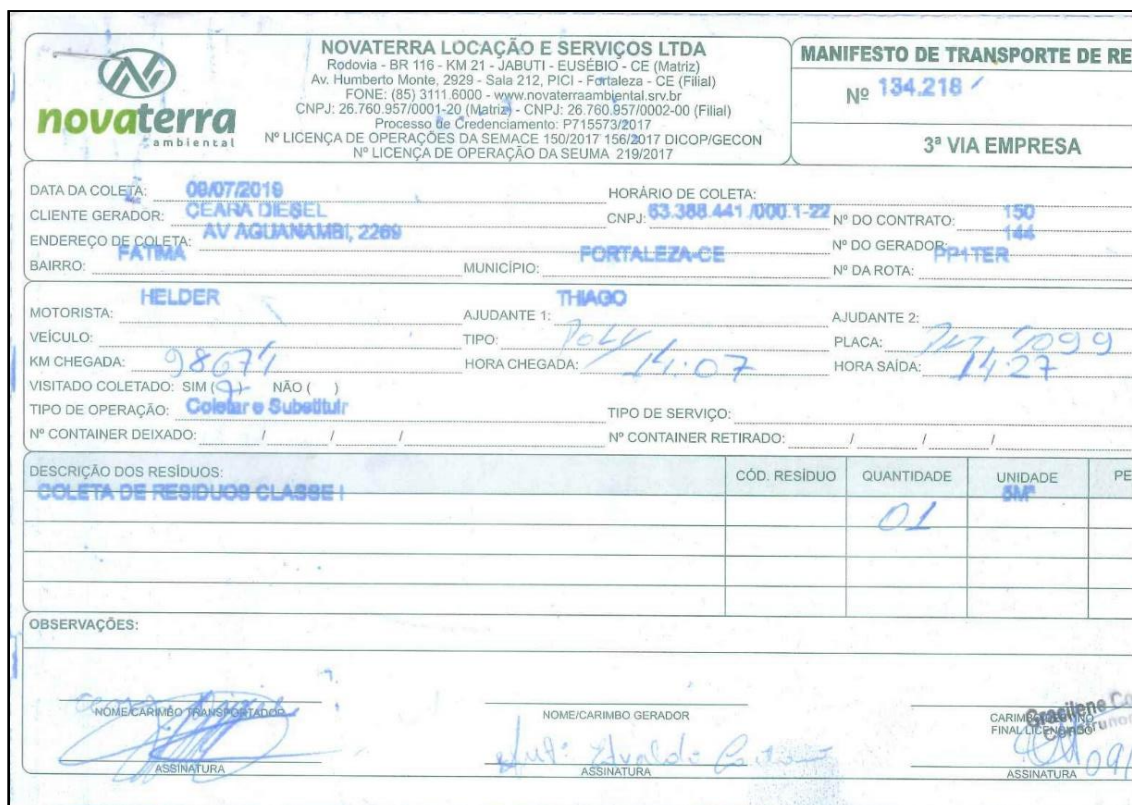 novaterra
ambiental
NOVATERRA LOCAÇÃO E SERVIÇOS LTDA
Rodovia - BR 116 - KM 21 - JABUTI - EUSÉBIO - CE (Matriz)
Av. Humberto Monte, 2929 - Sala 212, PICI - Fortaleza - CE (Filial)
FONE: (85) 3111.6000 - www.novaterraambiental.srv.br
CNPJ: 26.760.957/0001-20 (Matriz) - CNPJ: 26.760.957/0002-00 (Filial)
Processo de Credenciamento: P715573/2017
Nº LICENÇA DE OPERAÇÕES DA SEMACE 150/2017 156/2017 DICOP/GECON
Nº LICENÇA DE OPERAÇÃO DA SEUMA 219/2017
MANIFESTO DE TRANSPORTE DE RE
Nº 134.218
3ª VIA EMPRESA
DATA DA COLETA: 09/07/2019 HORÁRIO DE COLETA:
CLIENTE GERADOR: CEARA DIESEL CNPJ: 63.388.441/000.1-22 Nº DO CONTRATO: 150
ENDEREÇO DE COLETA: AV AGUANAMBI, 2269 Nº DO GERADOR: 144
BAIRRO: FATIMA MUNICÍPIO: FORTALEZA-CE Nº DA ROTA: PP1TER
MOTORISTA: HELDER AJUDANTE 1: THIAGO AJUDANTE 2:
VEÍCULO: TIPO: Poly PLACA: 5099
KM CHEGADA: 98671 HORA CHEGADA: 14:07 HORA SAÍDA: 14:27
VISITADO COLETADO: SIM ( ) NÃO ( )
TIPO DE OPERAÇÃO: Coletar e Substituir TIPO DE SERVIÇO:
Nº CONTAINER DEIXADO: / / / Nº CONTAINER RETIRADO: / / /
DESCRIÇÃO DOS RESÍDUOS: CÓD. RESÍDUO QUANTIDADE UNIDADE PE
COLETA DE RESIDUOS CLASSE I 01 5M³
OBSERVAÇÕES:
NOME/CARIMBO TRANSPORTADOR NOME/CARIMBO GERADOR
Grasilene Co
ASSINATURA ASSINATURA ASSINATURA 09/